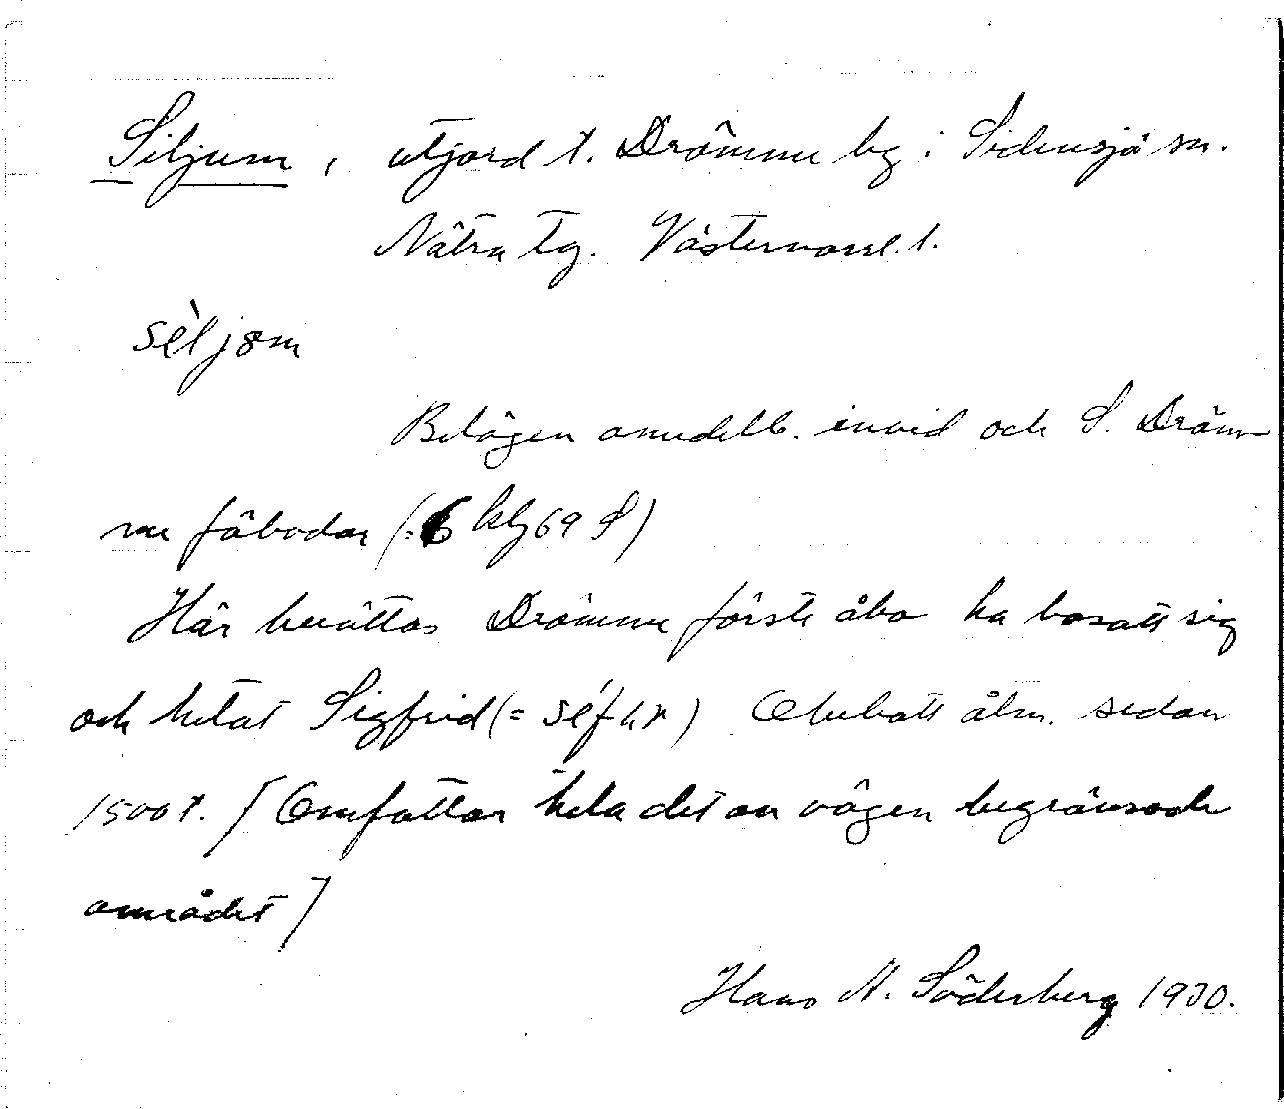 Siljum, utjord t. Drömme by i Sidensjö sn.
Nätra tg. Västernorrl. l.
sèljom
Belägen omedelb. invid och S. Dröm-
me fäbodar (=6 kbg 69 S)
Här berättas Drömme förste åbo ha bosatt sig
och hetat Sigfrid (= séfhr) Obebott åtm. sedan
1500 t. [Omfattar hela det av vägen begränsade
området]
Hans N. Söderberg 1930.